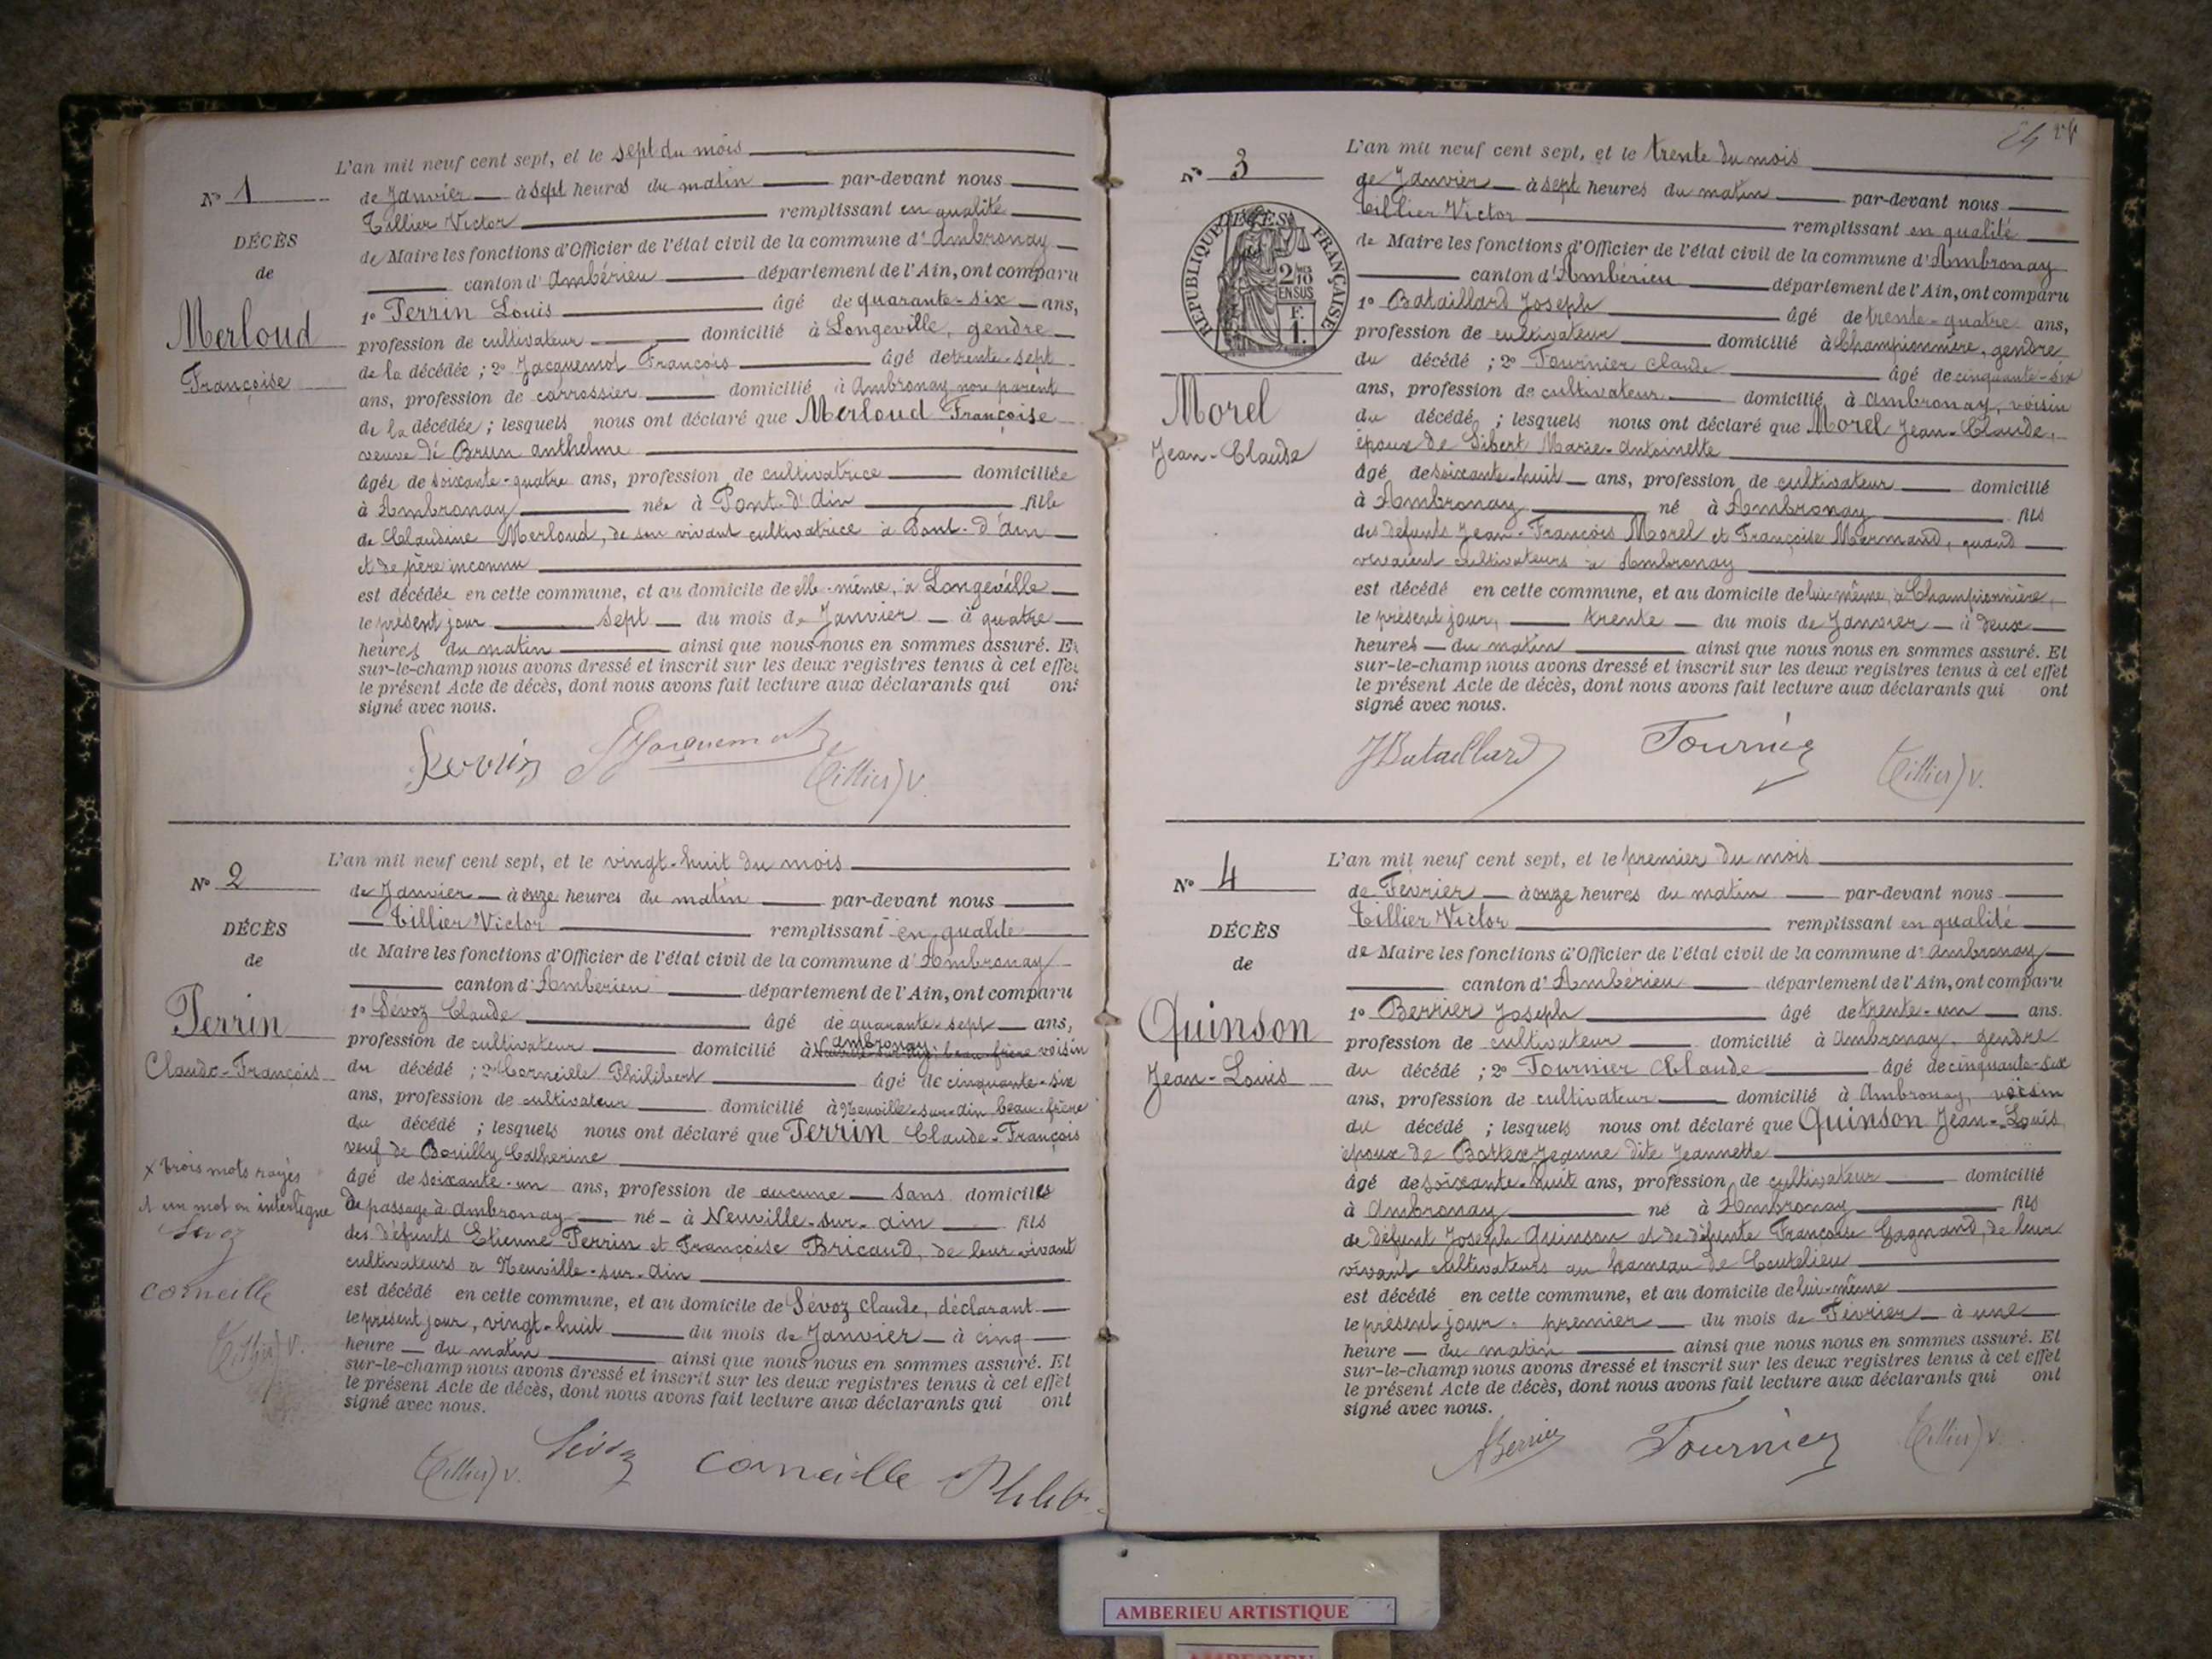 L'an mil neuf cent sept, et le sept du mois
N° 1
de Janvier à sept heures du matin par-devant nous
Tillier Victor remplissant en qualité
DÉCÈS
de Maire les fonctions d'Officier de l'état civil de la commune d'Ambronay
de
canton d'Ambérieu département de l'Ain, ont comparu
1° Perrin Louis âgé de quarante-six ans,
Merloud
profession de cultivateur domicilié à Longeville, gendre
Françoise
de la décédée ; 2° Jacquemot François âgé de trente-sept
ans, profession de carrossier domicilié à Ambronay non parent
de la décédée ; lesquels nous ont déclaré que Merloud Françoise
veuve de Brun Anthelme
âgée de soixante-quatre ans, profession de cultivatrice domiciliée
à Ambronay née à Pont-d'Ain fille
de Claudine Merloud, de son vivant cultivatrice à Pont-d'Ain
et de père inconnu
est décédée en cette commune, et au domicile de elle-même, à Longeville
le présent jour sept du mois de Janvier à quatre
heures du matin ainsi que nous nous en sommes assuré. Et
sur-le-champ nous avons dressé et inscrit sur les deux registres tenus à cet effet
le présent Acte de décès, dont nous avons fait lecture aux déclarants qui ont
signé avec nous.
Perrin Jacquemot Tillier V.
L'an mil neuf cent sept, et le vingt-huit du mois
N° 2
de Janvier à onze heures du matin par-devant nous
Tillier Victor remplissant en qualité
DÉCÈS
de Maire les fonctions d'Officier de l'état civil de la commune d'Ambronay
de
canton d'Ambérieu département de l'Ain, ont comparu
1° Sévoz Claude âgé de quarante-sept ans,
Perrin
Ambronay
profession de cultivateur domicilié à Neuville-sur-Ain, beau-frère voisin
Claude-François
du décédé ; 2° Corneille Philibert âgé de cinquante-six
ans, profession de cultivateur domicilié à Neuville-sur-Ain beau-frère
du décédé ; lesquels nous ont déclaré que Perrin Claude-François
veuf de Bouilly Catherine
x trois mots rayés
âgé de soixante-un ans, profession de aucune sans domicile
et un mot en interligne
de passage à Ambronay né à Neuville-sur-Ain fils
Sevoz
des défunts Etienne Perrin et Françoise Bricaud, de leur vivant
cultivateurs à Neuville-sur-Ain
corneille
est décédé en cette commune, et au domicile de Sévoz Claude, déclarant
le présent jour, vingt-huit du mois de Janvier à cinq
Tillier V.
heure du matin ainsi que nous nous en sommes assuré. Et
sur-le-champ nous avons dressé et inscrit sur les deux registres tenus à cet effet
le présent Acte de décès, dont nous avons fait lecture aux déclarants qui ont
signé avec nous.
Tillier V. Sévoz corneille Philib
L'an mil neuf cent sept, et le trente du mois
N° 3
de Janvier à sept heures du matin par-devant nous
Tillier Victor remplissant en qualité
DÉCÈS
de
RÉPUBLIQUE FRANÇAISE
2/10 EN SUS
F. 1.
de Maire les fonctions d'Officier de l'état civil de la commune d'Ambronay
canton d'Ambérieu département de l'Ain, ont comparu
1° Bataillard Joseph âgé de trente-quatre ans,
profession de cultivateur domicilié à Championnière, gendre
du décédé ; 2° Fournier Claude âgé de cinquante-six
Morel
ans, profession de cultivateur domicilié à Ambronay, voisin
du décédé ; lesquels nous ont déclaré que Morel Jean-Claude,
Jean-Claude
époux de Sibert Marie-Antoinette
âgé de soixante-huit ans, profession de cultivateur domicilié
à Ambronay né à Ambronay fils
des défunts Jean-François Morel et Françoise Mermand, quand
vivaient cultivateurs à Ambronay
est décédé en cette commune, et au domicile de lui-même, à Championnière,
le présent jour, trente du mois de Janvier à deux
heures du matin ainsi que nous nous en sommes assuré. Et
sur-le-champ nous avons dressé et inscrit sur les deux registres tenus à cet effet
le présent Acte de décès, dont nous avons fait lecture aux déclarants qui ont
signé avec nous.
J Bataillard Fournier Tillier V.
L'an mil neuf cent sept, et le premier du mois
N° 4
de Février à onze heures du matin par-devant nous
Tillier Victor remplissant en qualité
DÉCÈS
de Maire les fonctions d'Officier de l'état civil de la commune d'Ambronay
de
canton d'Ambérieu département de l'Ain, ont comparu
1° Berrier Joseph âgé de trente-un ans.
Quinson
profession de cultivateur domicilié à Ambronay, gendre
Jean-Louis
du décédé ; 2° Fournier Claude âgé de cinquante-six
ans, profession de cultivateur domicilié à Ambronay, voisin
du décédé ; lesquels nous ont déclaré que Quinson Jean-Louis
époux de Bottex Jeanne dite Jeannette
âgé de soixante-huit ans, profession de cultivateur domicilié
à Ambronay né à Ambronay fils
de défunt Joseph Quinson et de défunte Françoise Gagnand, de leur
vivant cultivateurs au hameau de Coutelieu
est décédé en cette commune, et au domicile de lui-même
le présent jour, premier du mois de Février à une
heure du matin ainsi que nous nous en sommes assuré. Et
sur-le-champ nous avons dressé et inscrit sur les deux registres tenus à cet effet
le présent Acte de décès, dont nous avons fait lecture aux déclarants qui ont
signé avec nous.
Berrier Fournier Tillier V.
AMBERIEU ARTISTIQUE
AMBERIEU